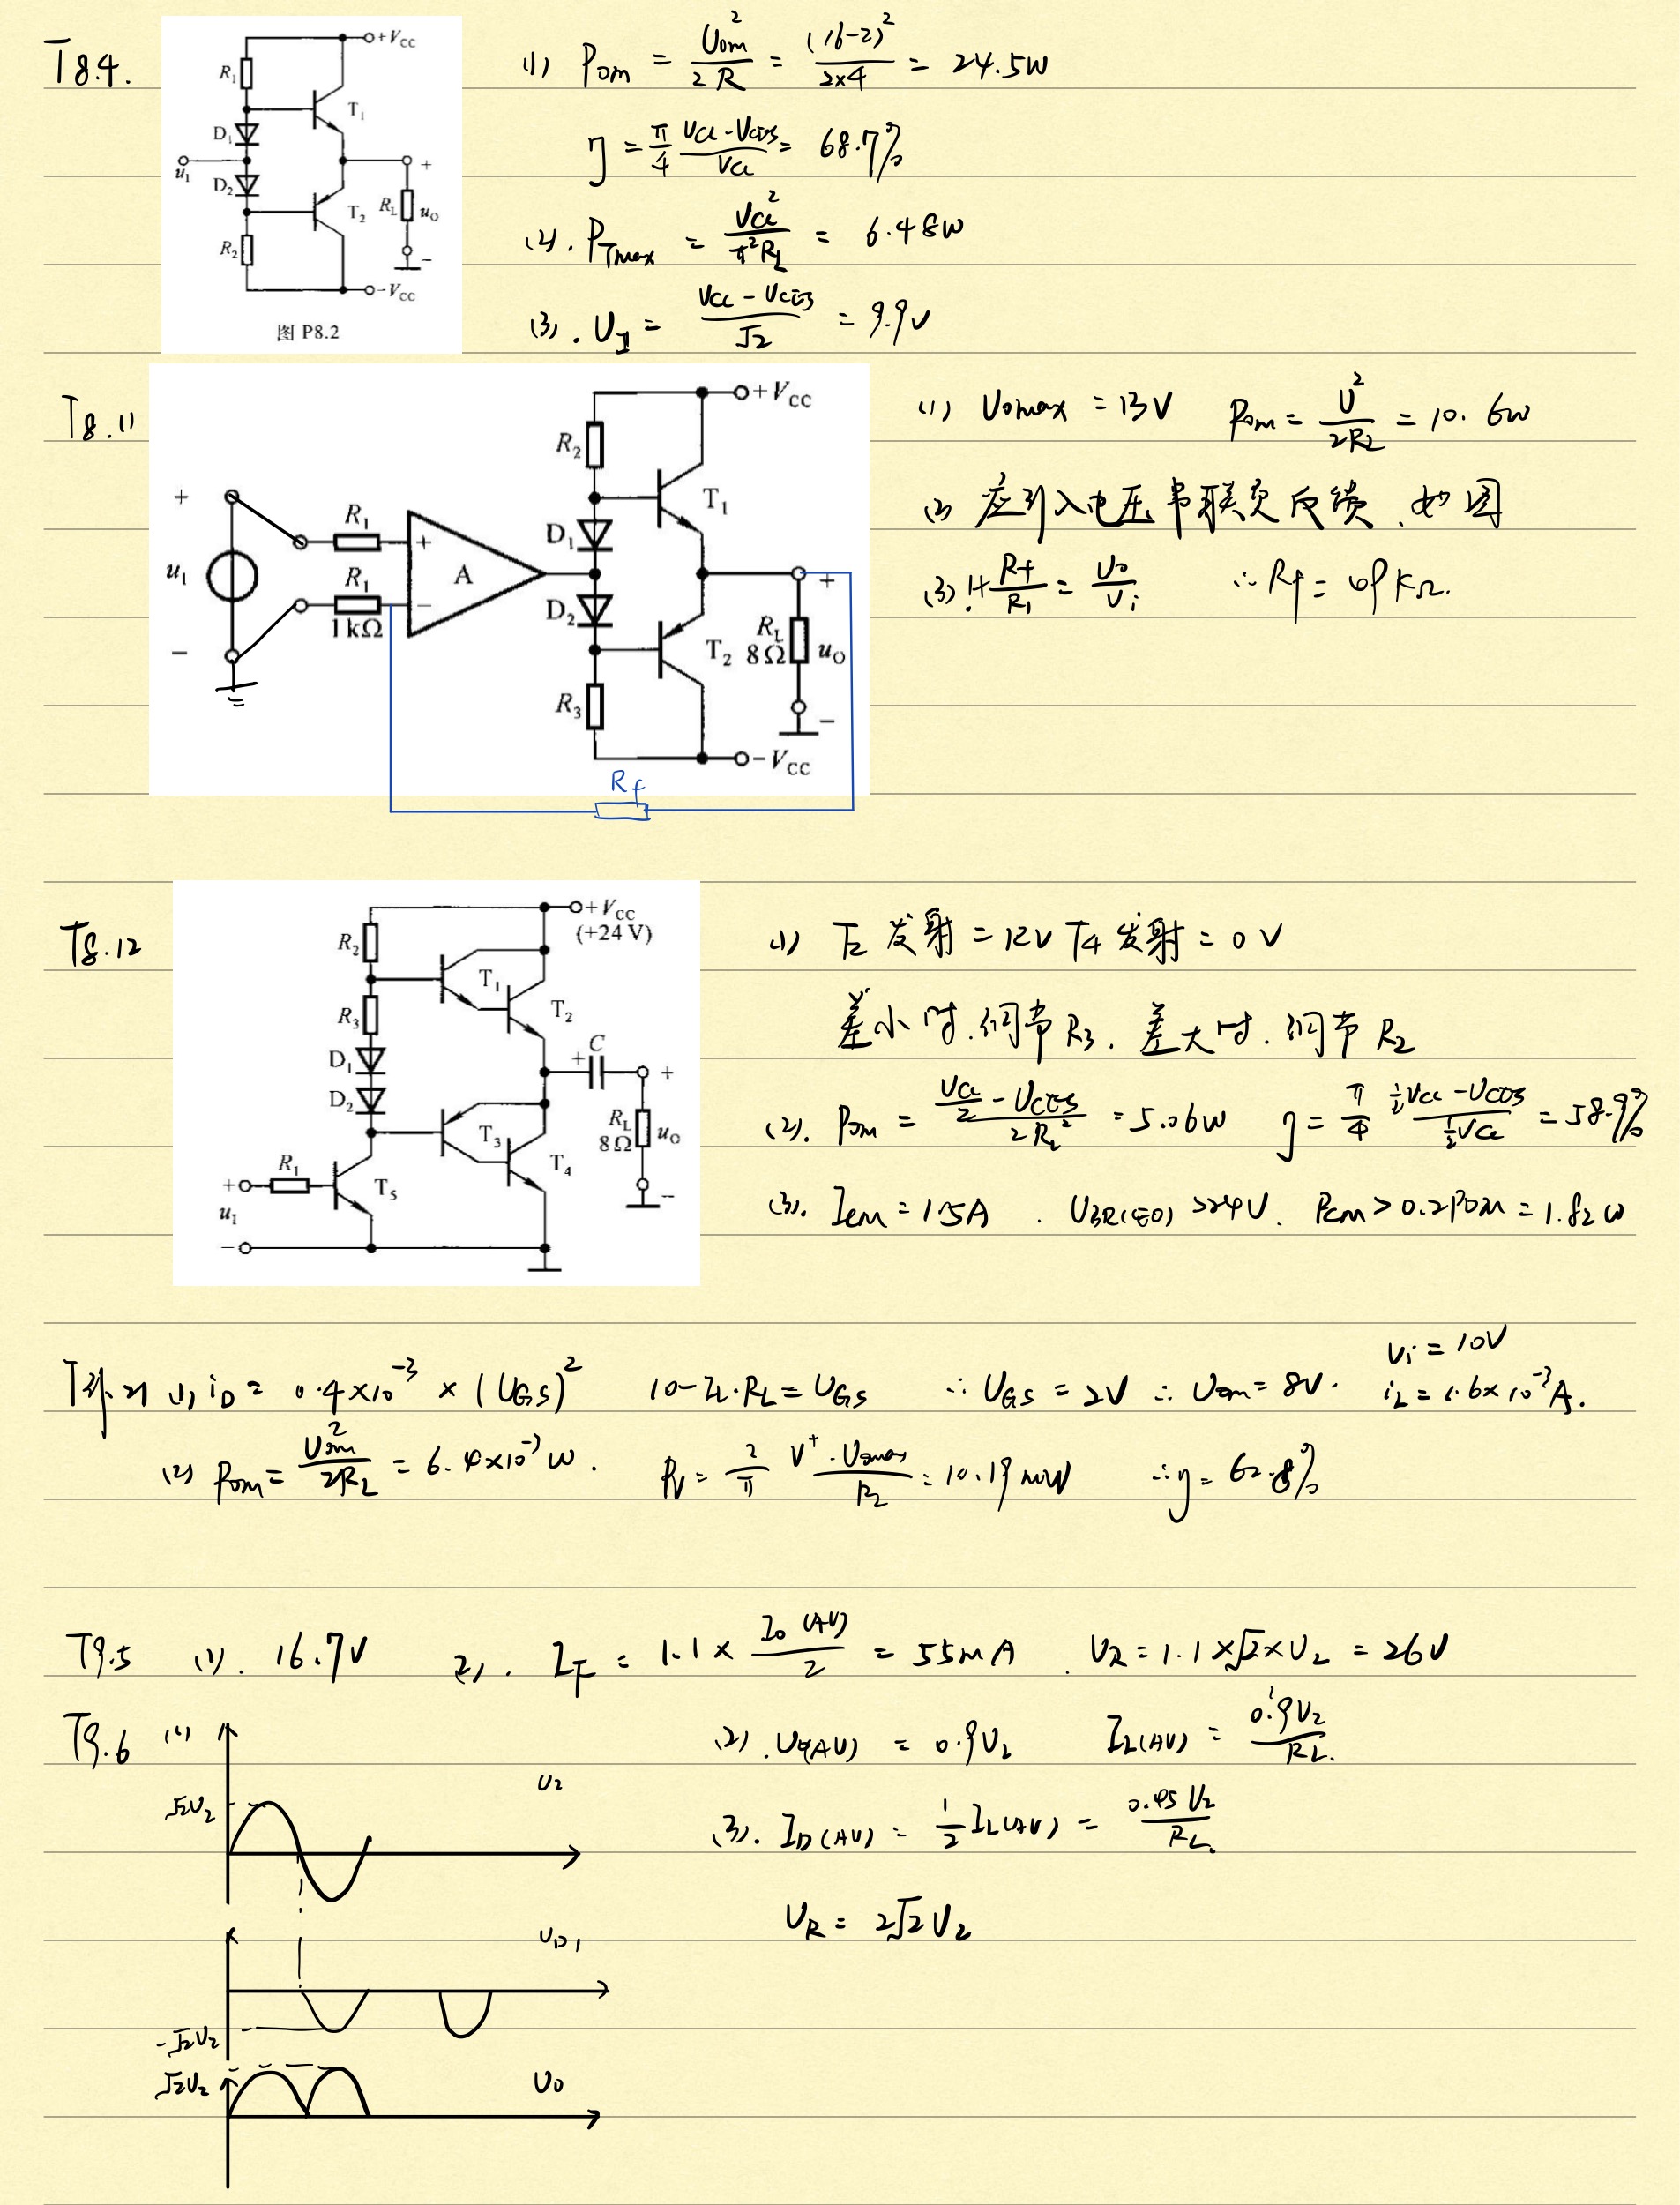 T8.4.
+V_CC
R₁
T₁
D₁
u_I
D₂
T₂ R_L u_O
R₂
-V_CC
图 P8.2
(1) P_om = U_om² / 2R = (16-2)² / 2×4 = 24.5W
η = π/4 (V_CC - V_CES)/V_CC = 68.7%
(2). P_Tmax = V_CC² / π²R_L = 6.48W
(3). U_I = (V_CC - U_CES)/√2 = 9.9V
T8.11
+V_CC
R₂
T₁
R₁
D₁
u_I
A
R₁
D₂
1 kΩ
T₂
R_L
8 Ω
u_O
R₃
-V_CC
R_f
(1) U_omax = 13V P_om = U²/2R_L = 10.6W
(2) 应引入电压串联负反馈、如图
(3). 1+ R_f/R₁ = U_o/U_i ∴ R_f = 49KΩ.
T8.12
+V_CC
(+24 V)
R₂
T₁
T₂
R₃
D₁
C
D₂
R_L
8 Ω
u_O
T₃
T₄
R₁
T₅
u_I
(1) T₂ 发射 = 12V T₄ 发射 = 0V
差小时.调节R₃. 差大时.调节R₂
(2). P_om = (V_CC/2 - U_CES)/2R_L² = 5.06W η = π/4 (½V_CC - U_CES)/½V_CC = 58.9%
(3). I_CM = 1.5A . U_BR(CEO) >24V. P_CM > 0.2P_OM = 1.82W
(1) i_D = 0.4×10⁻³ × (U_GS)² 10-I_L·R_L = U_GS ∴ U_GS = 2V ∴ U_om = 8V. U_i = 10V
i_L = 1.6×10⁻³A.
(2) P_om = U_om²/2R_L = 6.4×10⁻³W. P_V = 2/π V⁺·U_omax/R_L = 10.19mW ∴ η = 62.8%
T9.5 (1). 16.7V 2). I_F = 1.1 × I_O(AV)/2 = 55mA . U_R = 1.1×√2×U₂ = 26V
T9.6 (1)
U₂
√2U₂
U_D1
-√2U₂
√2U₂
U_O
(2). U_O(AV) = 0.9U₂ I_L(AV) = 0.9U₂/R_L.
(3). I_D(AV) = ½ I_L(AV) = 0.45U₂/R_L.
U_R = 2√2U₂